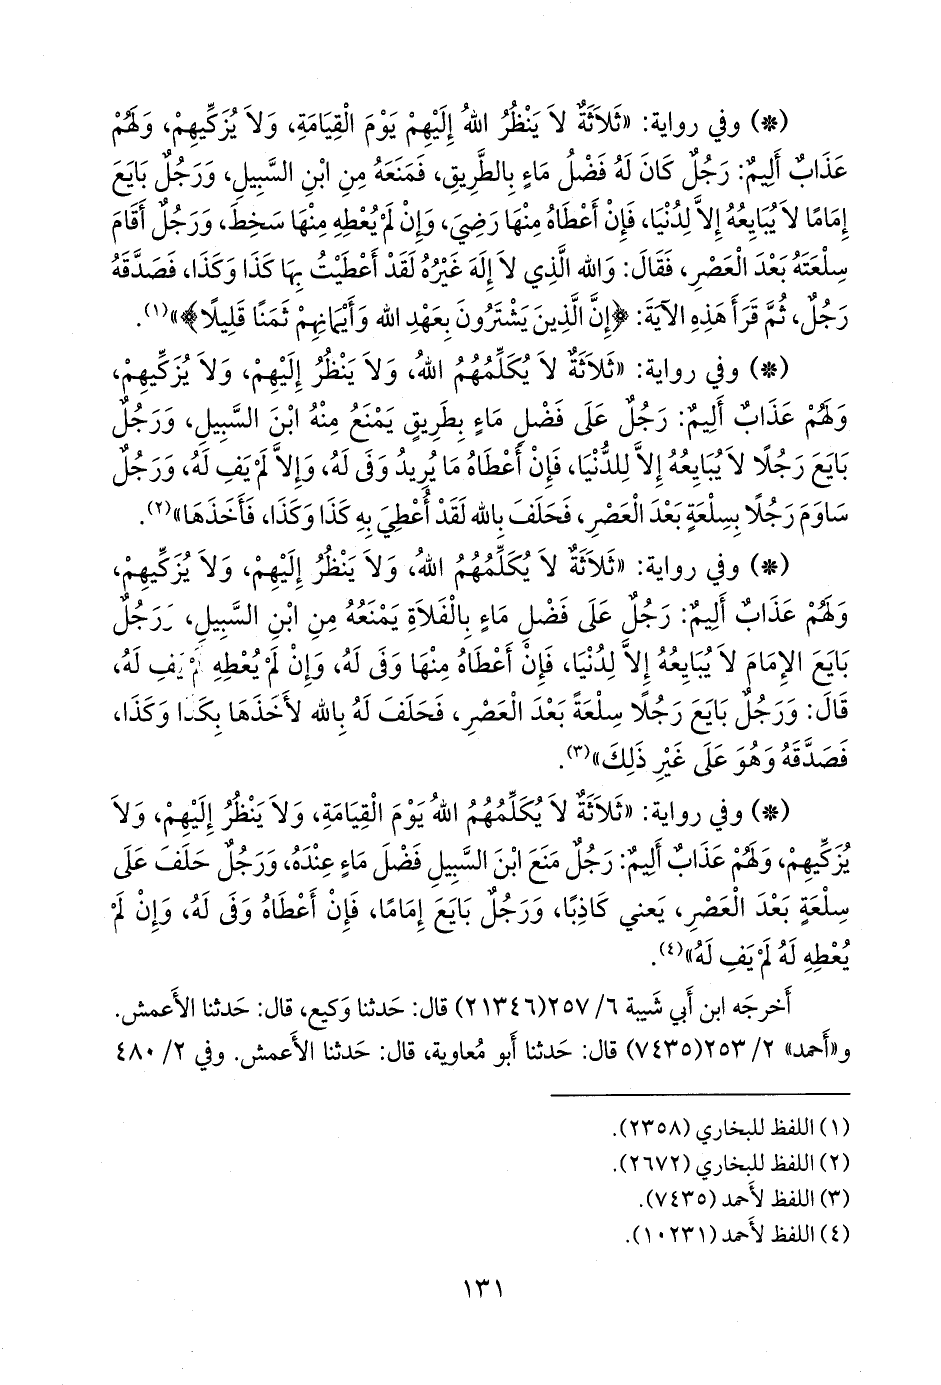 (*) وفي رواية: «ثَلاَثَةٌ لاَ يَنْظُرُ اللهُ إِلَيْهِمْ يَوْمَ الْقِيَامَةِ، وَلاَ يُزَكِّيهِمْ، وَلَهُمْ
عَذَابٌ أَلِيمٌ: رَجُلٌ كَانَ لَهُ فَضْلُ مَاءٍ بِالطَّرِيقِ، فَمَنَعَهُ مِنِ ابْنِ السَّبِيلِ، وَرَجُلٌ بَايَعَ
إِمَامًا لاَ يُبَايِعُهُ إِلاَّ لِدُنْيَا، فَإِنْ أَعْطَاهُ مِنْهَا رَضِيَ، وَإِنْ لَمْ يُعْطِهِ مِنْهَا سَخِطَ، وَرَجُلٌ أَقَامَ
سِلْعَتَهُ بَعْدَ الْعَصْرِ، فَقَالَ: وَالله الَّذِي لاَ إِلَهَ غَيْرُهُ لَقَدْ أَعْطَيْتُ بِهَا كَذَا وَكَذَا، فَصَدَّقَهُ
رَجُلٌ، ثُمَّ قَرَأَ هَذِهِ الآيَةَ: ﴿إِنَّ الَّذِينَ يَشْتَرُونَ بِعَهْدِ الله وَأَيْمَانِهِمْ ثَمَنًا قَلِيلًا﴾»(١).
(*) وفي رواية: «ثَلاَثَةٌ لاَ يُكَلِّمُهُمُ اللهُ، وَلاَ يَنْظُرُ إِلَيْهِمْ، وَلاَ يُزَكِّيهِمْ،
وَلَهُمْ عَذَابٌ أَلِيمٌ: رَجُلٌ عَلَى فَضْلِ مَاءٍ بِطَرِيقٍ يَمْنَعُ مِنْهُ ابْنَ السَّبِيلِ، وَرَجُلٌ
بَايَعَ رَجُلًا لاَ يُبَايِعُهُ إِلاَّ لِلدُّنْيَا، فَإِنْ أَعْطَاهُ مَا يُرِيدُ وَفَى لَهُ، وَإِلاَّ لَمْ يَفِ لَهُ، وَرَجُلٌ
سَاوَمَ رَجُلًا بِسِلْعَةٍ بَعْدَ الْعَصْرِ، فَحَلَفَ بِالله لَقَدْ أُعْطِيَ بِهِ كَذَا وَكَذَا، فَأَخَذَهَا»(٢).
(*) وفي رواية: «ثَلاَثَةٌ لاَ يُكَلِّمُهُمُ اللهُ، وَلاَ يَنْظُرُ إِلَيْهِمْ، وَلاَ يُزَكِّيهِمْ،
وَلَهُمْ عَذَابٌ أَلِيمٌ: رَجُلٌ عَلَى فَضْلِ مَاءٍ بِالْفَلاَةِ يَمْنَعُهُ مِنِ ابْنِ السَّبِيلِ، وَرَجُلٌ
بَايَعَ الإِمَامَ لاَ يُبَايِعُهُ إِلاَّ لِدُنْيَا، فَإِنْ أَعْطَاهُ مِنْهَا وَفَى لَهُ، وَإِنْ لَمْ يُعْطِهِ لَمْ يَفِ لَهُ،
قَالَ: وَرَجُلٌ بَايَعَ رَجُلًا سِلْعَةً بَعْدَ الْعَصْرِ، فَحَلَفَ لَهُ بِالله لأَخَذَهَا بِكَذَا وَكَذَا،
فَصَدَّقَهُ وَهُوَ عَلَى غَيْرِ ذَلِكَ»(٣).
(*) وفي رواية: «ثَلاَثَةٌ لاَ يُكَلِّمُهُمُ اللهُ يَوْمَ الْقِيَامَةِ، وَلاَ يَنْظُرُ إِلَيْهِمْ، وَلاَ
يُزَكِّيهِمْ، وَلَهُمْ عَذَابٌ أَلِيمٌ: رَجُلٌ مَنَعَ ابْنَ السَّبِيلِ فَضْلَ مَاءٍ عِنْدَهُ، وَرَجُلٌ حَلَفَ عَلَى
سِلْعَةٍ بَعْدَ الْعَصْرِ، يَعني كَاذِبًا، وَرَجُلٌ بَايَعَ إِمَامًا، فَإِنْ أَعْطَاهُ وَفَى لَهُ، وَإِنْ لَمْ
يُعْطِهِ لَهُ لَمْ يَفِ لَهُ»(٤).
أَخرجَه ابن أبي شَيبة ٦/ ٢٥٧(٢١٣٤٦) قال: حَدثنا وَكيع، قال: حَدثنا الأَعمش.
و«أَحمد» ٢/ ٢٥٣(٧٤٣٥) قال: حَدثنا أَبو مُعاوية، قال: حَدثنا الأَعمش. وفي ٢/ ٤٨٠
(١) اللفظ للبخاري (٢٣٥٨).
(٢) اللفظ للبخاري (٢٦٧٢).
(٣) اللفظ لأَحمد (٧٤٣٥).
(٤) اللفظ لأَحمد (١٠٢٣١).
١٣١